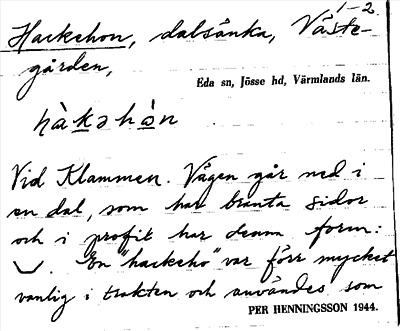 1-2.
Hackehon, dalsänka, Väste-
gården,
Eda sn, Jösse hd, Värmlands län.
hàkəhòn
Vid Klammen. Vägen går ned i
en dal, som har branta sidor
och i profil har denna form:
. En "hackeho" var förr mycket
vanlig i trakten och användes som
PER HENNINGSSON 1944.